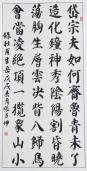 岱宗夫如何齊魯青未了
造化鍾神秀陰陽割昏曉
蕩胸生層雲決眥入歸鳥
會當凌絕頂一覽衆山小
錄杜甫望岳戊戌